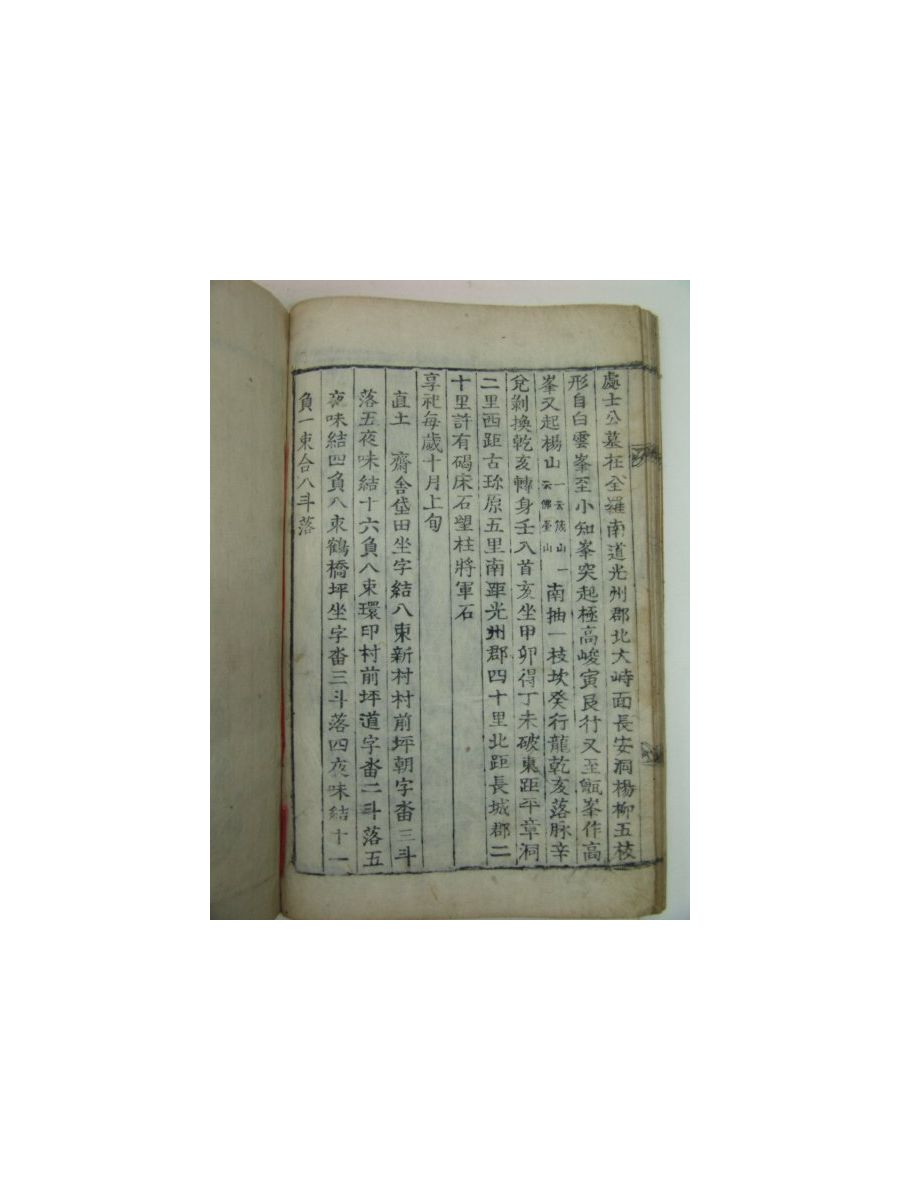 處士公墓在全羅南道光州郡北大峙面長安洞楊柳五枝
形自白雲峯至小知峯突起極高峻寅艮行又至甑峯作高
峯又起楊山一云筏山一云佛臺山南抽一枝坎癸行龍乾亥落脉辛
兌剝換乾亥轉身壬入首亥坐甲卯得丁未破東距平章洞
二里西距古珎原五里南距光州郡四十里北距長城郡二
十里許有碣床石望柱將軍石
享祀每歲十月上旬
直土 齋舍垈田坐字結八束新村村前坪朝字畓三斗
落五夜味結十六負八束環印村前坪道字畓二斗落五
夜味結四負八束鶴橋坪坐字畓三斗落四夜味結十一
負一束合八斗落